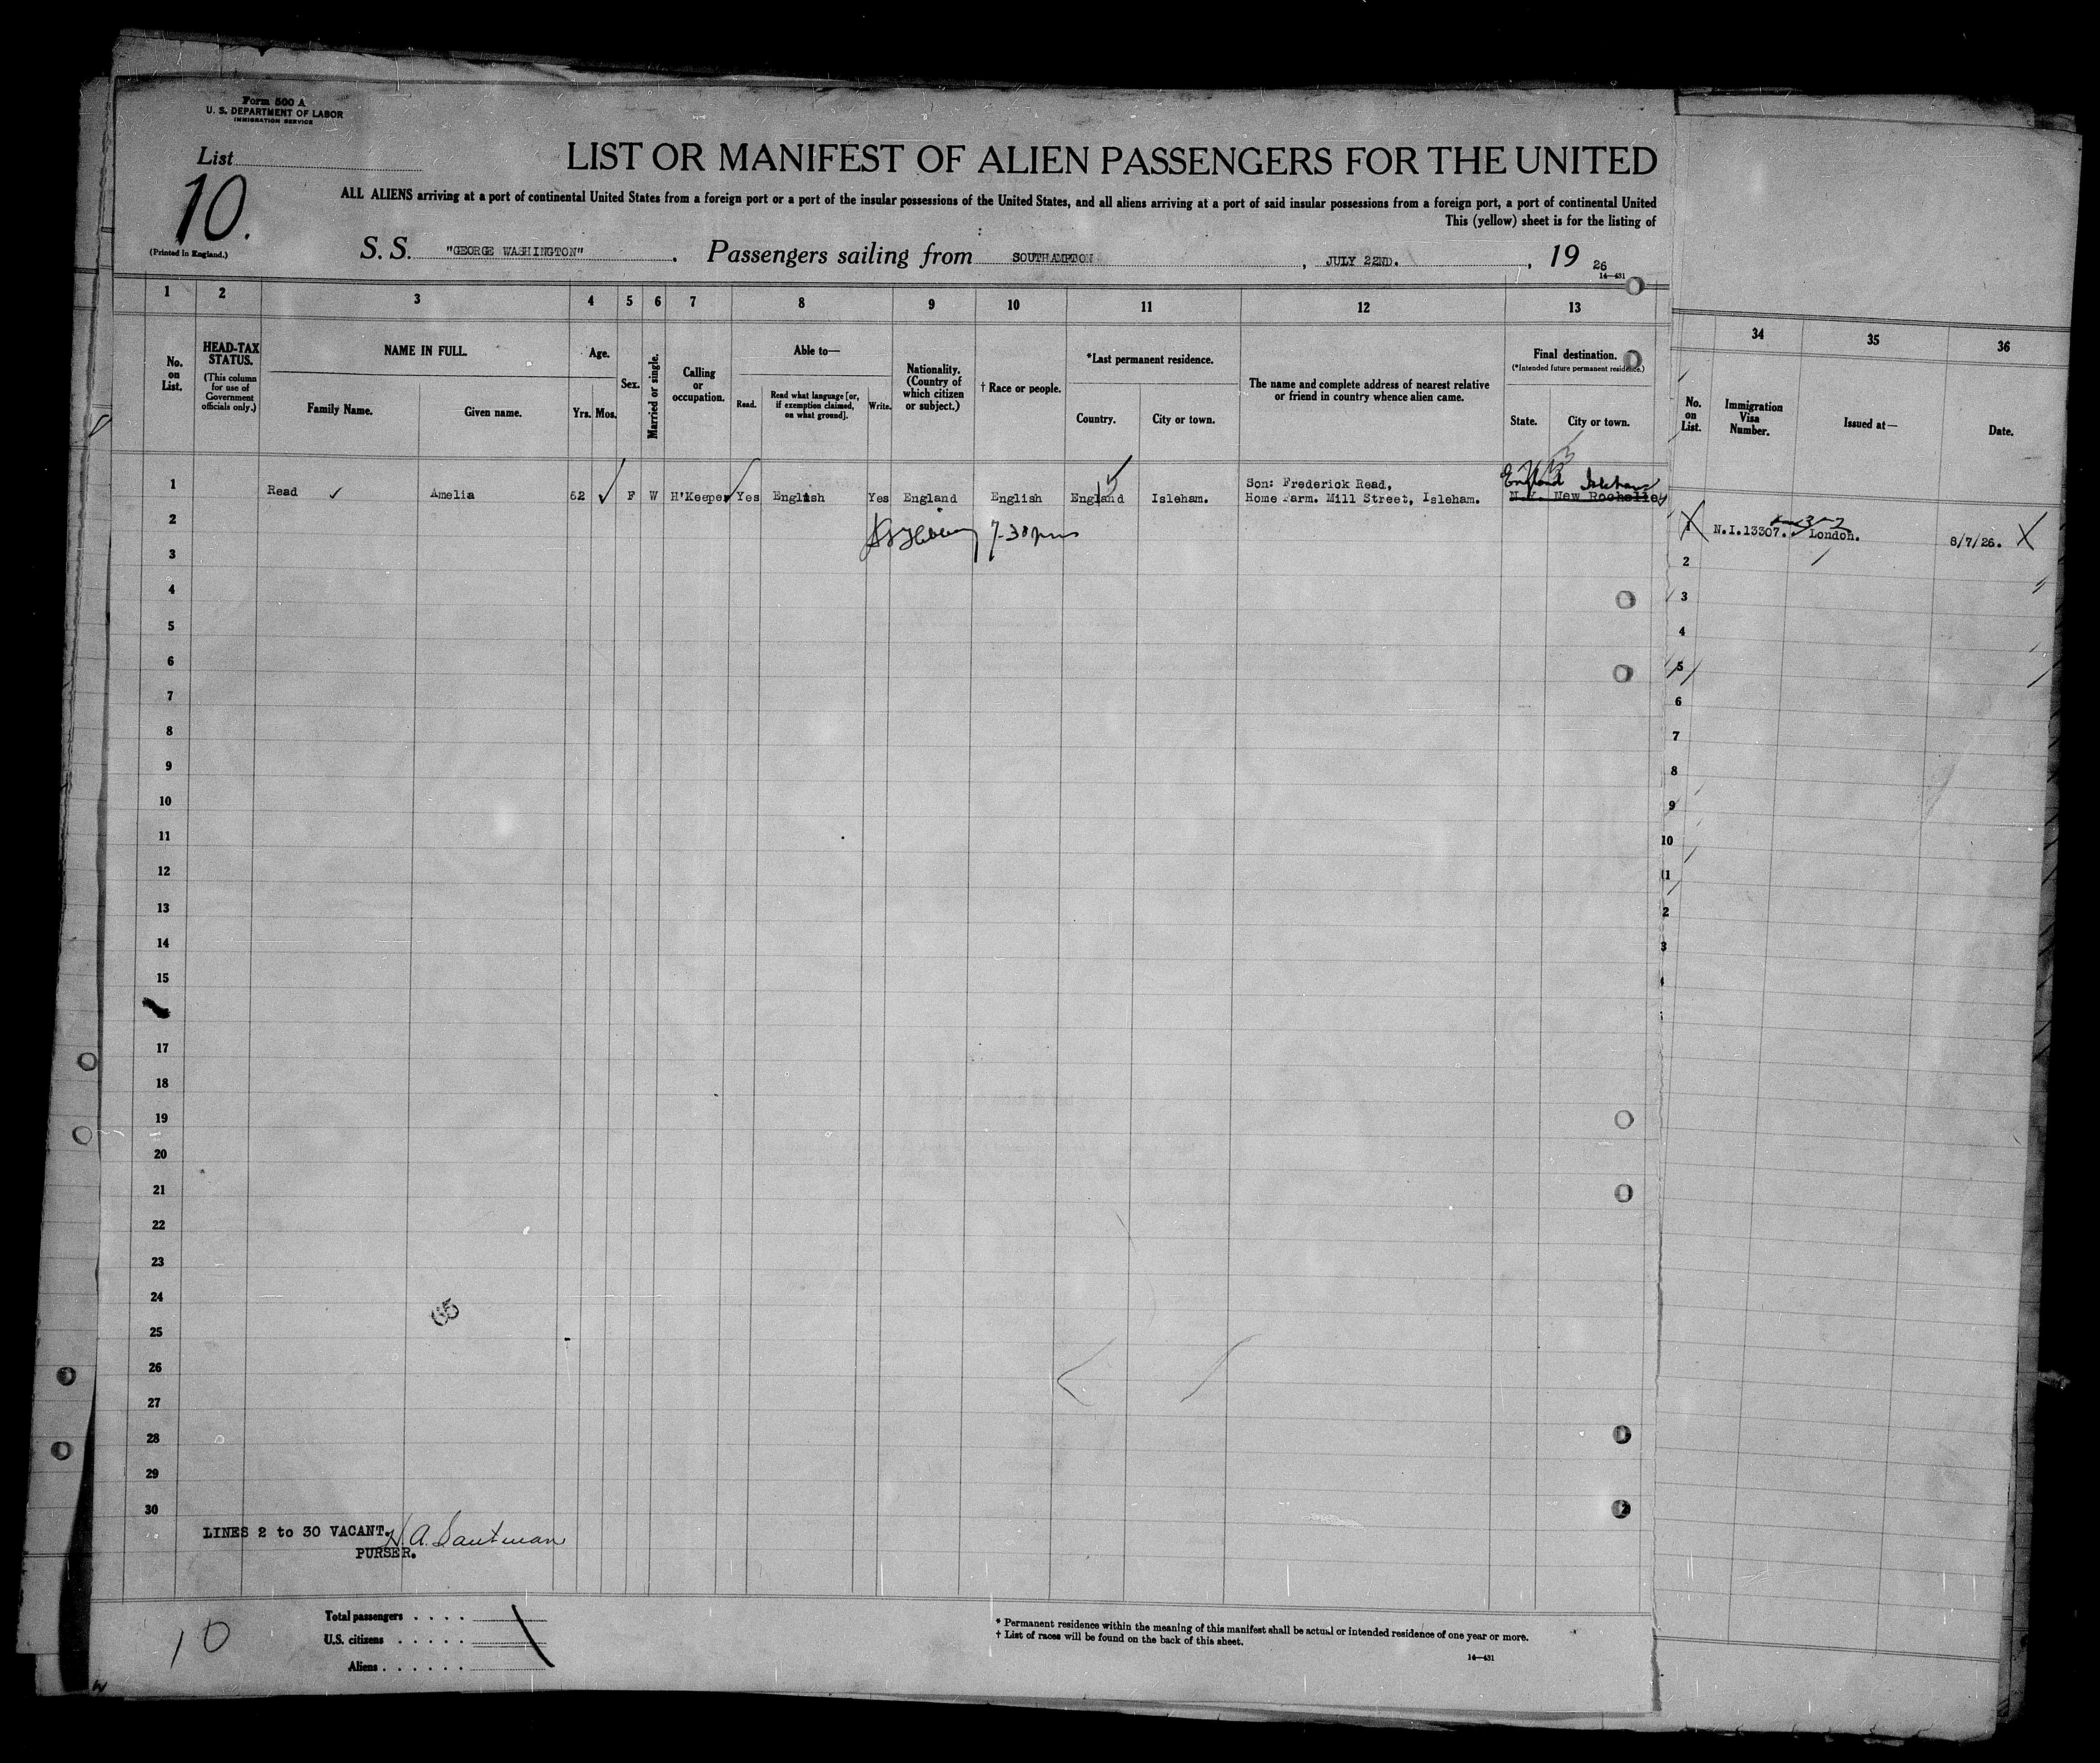 Form 500 A
U. S. DEPARTMENT OF LABOR
IMMIGRATION SERVICE
List
10.
(Printed in England.)
LIST OR MANIFEST OF ALIEN PASSENGERS FOR THE UNITED
ALL ALIENS arriving at a port of continental United States from a foreign port or a port of the insular possessions of the United States, and all aliens arriving at a port of said insular possessions from a foreign port, a port of continental United
This (yellow) sheet is for the listing of
S. S. "GEORGE WASHINGTON" . Passengers sailing from SOUTHAMPTON , JULY 22ND. , 19 26
14—431
1 2 3 4 5 6 7 8 9 10 11 12 13
No. on List.
HEAD-TAX STATUS.
(This column for use of Government officials only.)
NAME IN FULL.
Family Name. Given name.
Age.
Yrs. Mos.
Sex.
Married or single.
Calling or occupation.
Able to—
Read. Read what language [or, if exemption claimed, on what ground]. Write.
Nationality. (Country of which citizen or subject.)
† Race or people.
*Last permanent residence.
Country. City or town.
The name and complete address of nearest relative or friend in country whence alien came.
Final destination.
(*Intended future permanent residence.)
State. City or town.
34 35 36
No. on List.
Immigration Visa Number.
Issued at—
Date.
England Isleham
1 Read Amelia 62 F W H'Keeper Yes English Yes England English England Isleham. Son: Frederick Read,
Home Farm. Mill Street, Isleham. N.Y. New Rochelle
7-30 pm
1 N.I.13307. London. 8/7/26.
2
3
4
5
6
7
8
9
10
11
12
13
14
15
17
18
19
20
21
22
23
24
25
26
27
28
29
30
2
3
4
5
6
7
8
9
10
11
2
3
LINES 2 to 30 VACANT.
PURSER.
10
Total passengers . . . .
U.S. citizens . . . . .
Aliens . . . . . .
* Permanent residence within the meaning of this manifest shall be actual or intended residence of one year or more.
† List of races will be found on the back of this sheet.
14—431